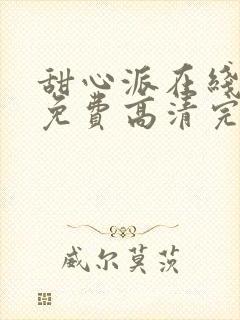 甜心派在线
免费高清完
威尔莫茨